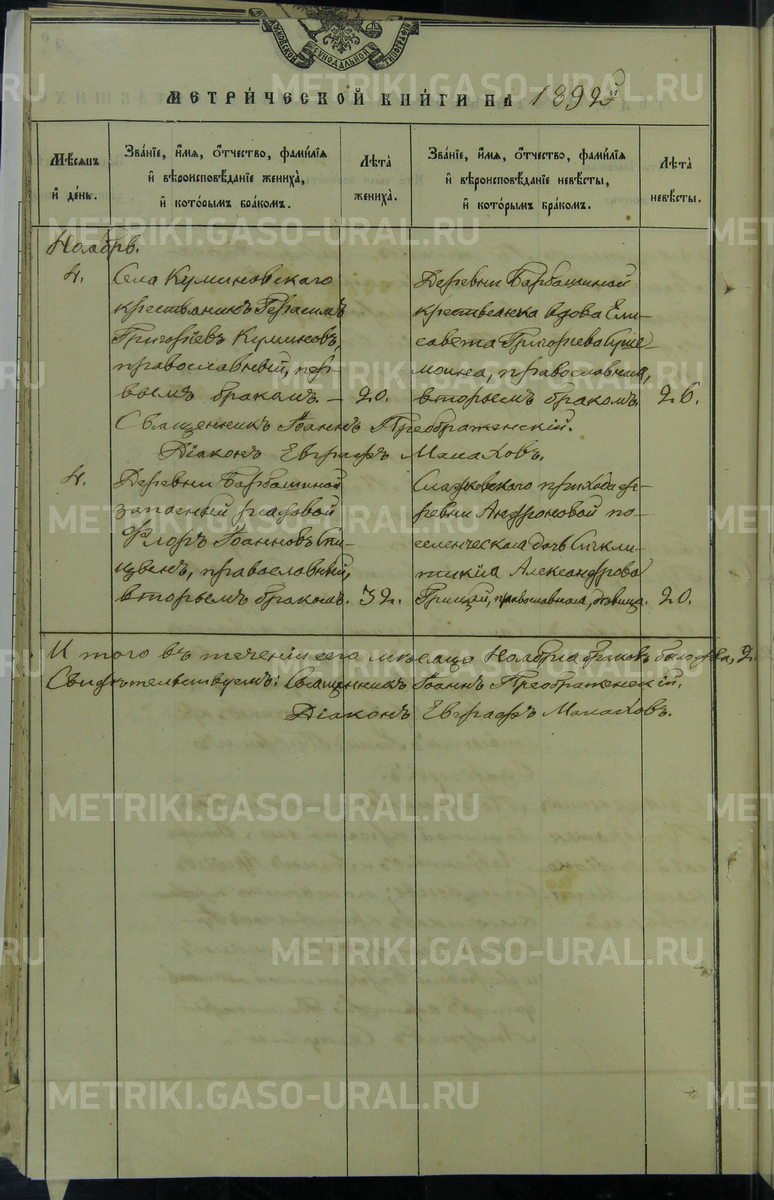 МОСКОВСКОЙ СИНОДАЛЬНОЙ ТИПОГРАФІИ
МЕТРИ́ЧЕСКОЙ КНИ́ГИ НА 1892й
Мѣ́сяцъ и҆ де́нь.
Зва́нїе, и҆́мя, ѻ҆́тчество, фами́лїя и҆ вѣроисповѣ́данїе жениха̀, и҆ кото́рымъ бра́комъ.
Лѣ́та жениха̀.
Зва́нїе, и҆́мя, ѻ҆́тчество, фами́лїя и҆ вѣроисповѣ́данїе невѣ́сты, и҆ кото́рымъ бра́комъ.
Лѣ́та невѣ́сты.
Ноябрь.
4.
Села Куминовскаго
крестьянинъ Герасимъ
Григоріевъ Куминовъ,
православный, пер-
вымъ бракомъ – 20.
Деревни Барбашиной
крестьянка вдова Ели-
савета Григорьева
православная,
вторымъ бракомъ 26.
Священникъ Іоаннъ Преображенскій.
Діаконъ Евграфъ Малаховъ.
4.
Деревни Барбашиной
запасный рядовой
Флоръ Іоанновъ
православный,
вторымъ бракомъ. 32.
Сладковскаго прихода де-
ревни Андроновой по-
селенческая дочь Сикли-
тикія Александрова
православная, дѣвица. 20.
Итого въ теченіи сего мѣсяца Ноября браковъ было два, 2.
Свидѣтельствуемъ: Священникъ Іоаннъ Преображенскій.
Діаконъ Евграфъ Малаховъ.
METRIKI.GASO-URAL.RU